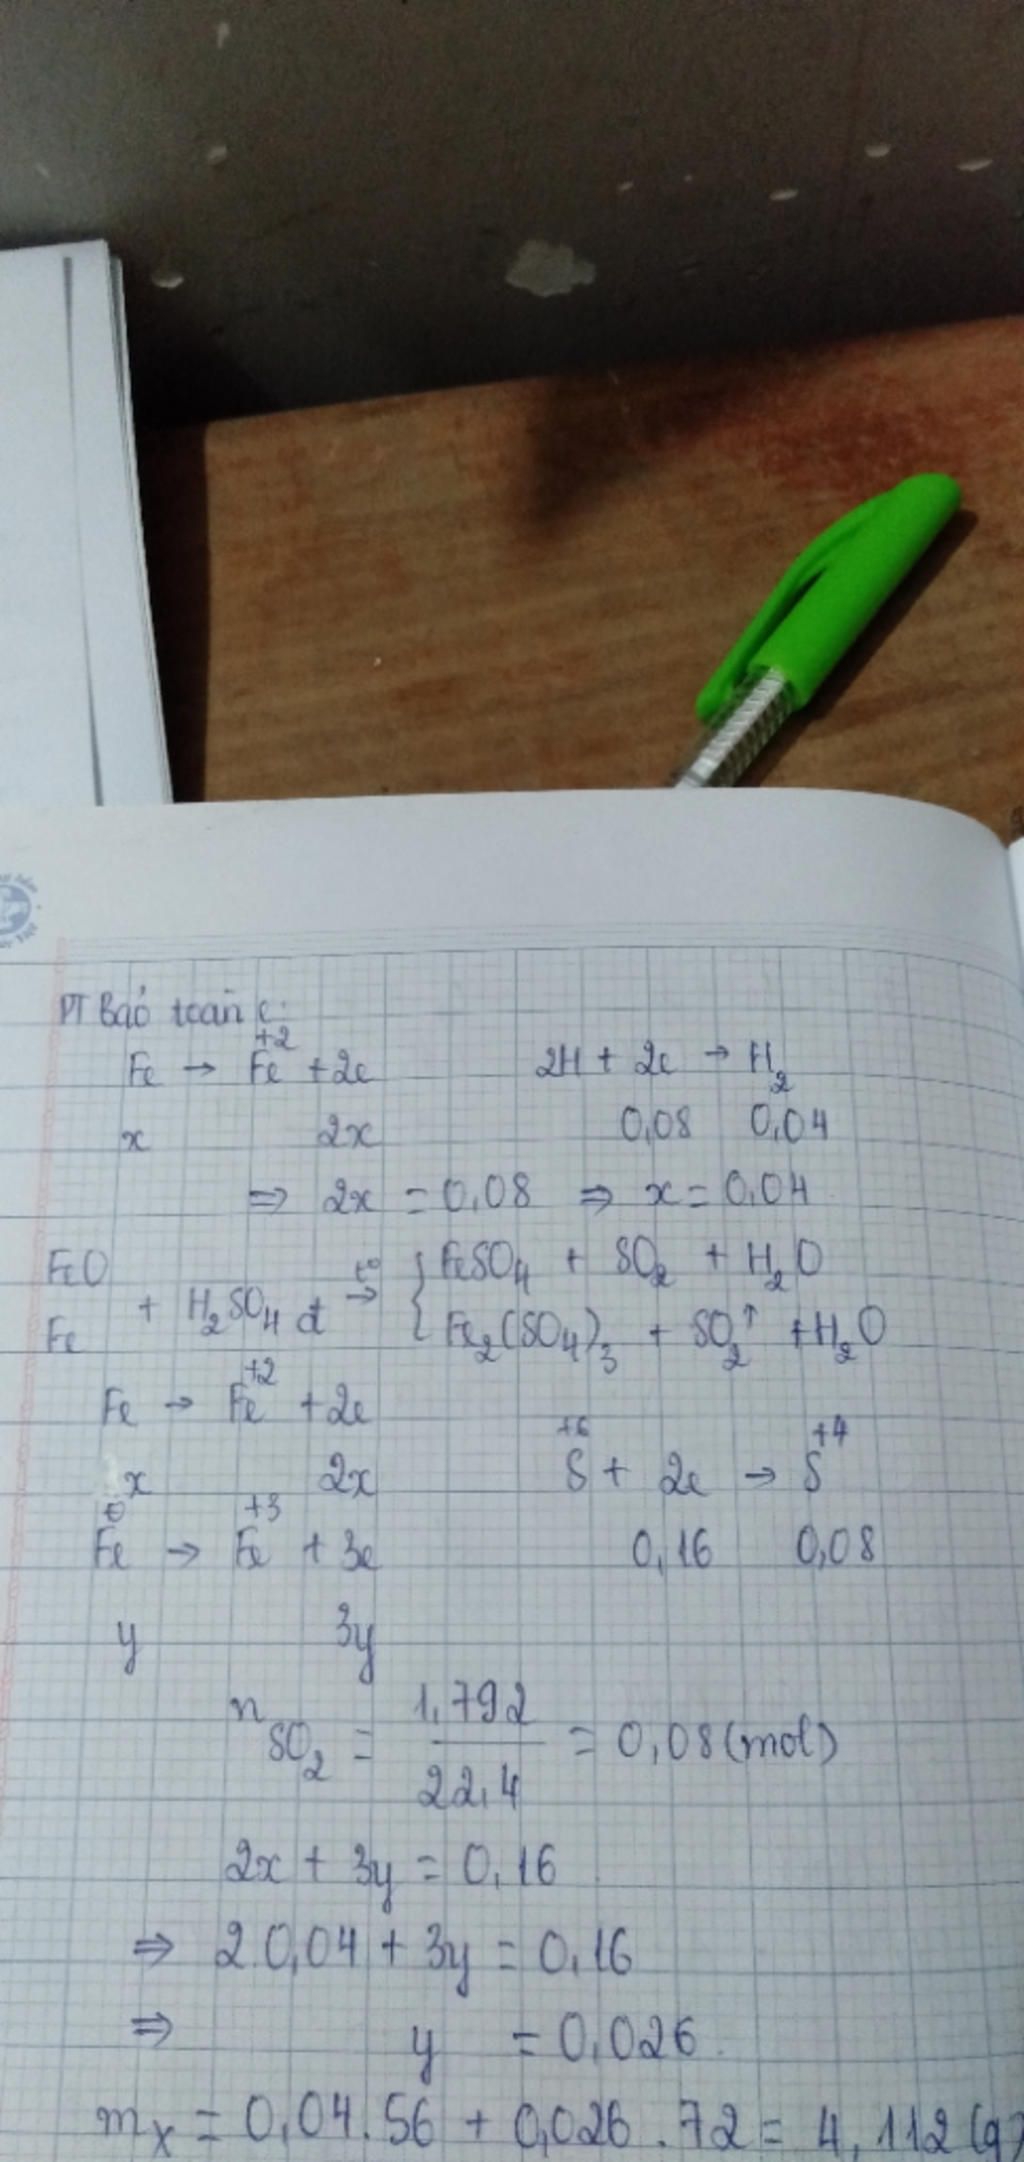 PT Bảo toàn e:
Fe → Fe⁺² + 2e 2H + 2e → H₂
x 2x 0,08 0,04
⇒ 2x = 0,08 ⇒ x = 0,04
FeO
Fe + H₂SO₄ đ t° → { FeSO₄ + SO₂ + H₂O
Fe₂(SO₄)₃ + SO₂↑ + H₂O
Fe → Fe⁺² + 2e
x 2x S⁺⁶ + 2e → S⁺⁴
Fe⁰ → Fe⁺³ + 3e 0,16 0,08
y 3y
n SO₂ = 1,792 / 22,4 = 0,08 (mol)
2x + 3y = 0,16
⇒ 2.0,04 + 3y = 0,16
⇒ y = 0,026.
mₓ = 0,04.56 + 0,026.72 = 4,112 (g)